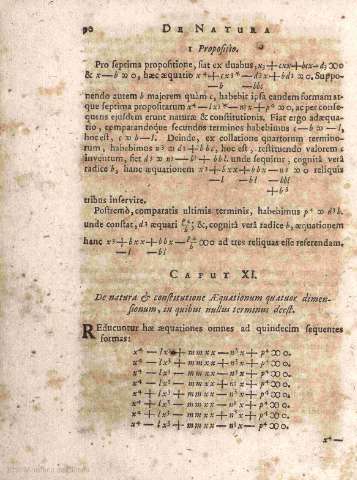 90 DE NATURA
1 Propositio.
Pro septima propositione, fiat ex duabus, x3+cxx+bcx—d3 ∞0
& x—b ∞0, hæc æquatio x4+cx3*—d3x+bd3 ∞0. Suppo-
—b —bbc
nendo autem b majorem quàm c, habebit ipsa eandem formam at-
que septima propositarum x4—lx3*—n3x+p4 ∞0, ac per conse-
quens ejusdem erunt naturæ & constitutionis. Fiat ergo adæqua-
tio, comparandoque secundos terminos habebimus c—b ∞—l,
hoc est, c ∞ b—l. Deinde, ex collatione quartorum termino-
rum, habebimus n3 ∞ d3+bbc, hoc est, restituendo valorem c
inventum, fiet d3 ∞ n3—b3+bbl. unde sequitur, cognitâ verâ
radice b, hanc æquationem x3+bxx+bbx—n3 ∞0 reliquis
—l —bl —bbl
+b3
tribus inservire.
Postremò, comparatis ultimis terminis, habebimus p4 ∞ d3b.
unde constat, d3 æquari p4/b; &, cognitâ verâ radice b, æquationem
hanc x3+bxx+bbx—p4/b ∞0 ad tres reliquas esse referendam.
—l —bl
CAPUT XI.
De natura & constitutione Æquationum quatuor dimen-
sionum, in quibus nullus terminus deest.
REducuntur hæ æquationes omnes ad quindecim sequentes
formas:
x4—lx3+mmxx—n3x+p4 ∞0.
x4—lx3—mmxx—n3x+p4 ∞0.
x4—lx3—mmxx+n3x+p4 ∞0.
x4—lx3+mmxx+n3x+p4 ∞0.
x4+lx3—mmxx+n3x+p4 ∞0.
x4+lx3—mmxx—n3x+p4 ∞0.
x4+lx3+mmxx—n3x+p4 ∞0.
x4—lx3—mmxx—n3x—p4 ∞0.
x4—